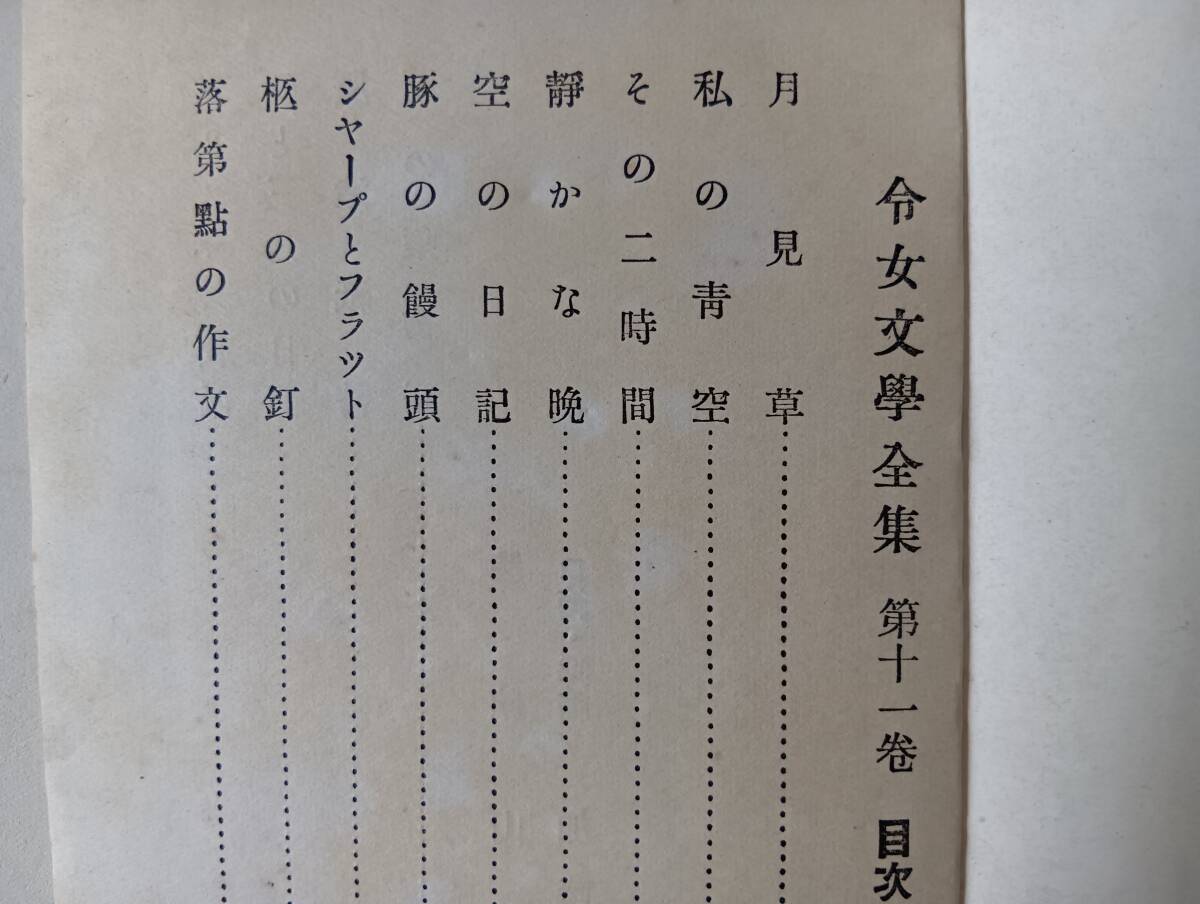 令女文學全集 第十一卷 目次
月見草
私の靑空
その二時間
靜かな晩
空の日記
豚の饅頭
シヤープとフラツト
柩の釘
落第點の作文